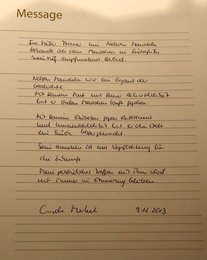 Message
In tiefer Trauer um Nelson Mandela
bekunde ich den Menschen in Südafrika
mein tief empfundenes Beileid.
Nelson Mandela war ein Gigant der
Geschichte.
Mit seinem Mut und seiner Menschlichkeit
hat er vielen Menschen Hoffnung gegeben.
Mit seinem Eintreten gegen Rassismus
und Unmenschlichkeit hat er die Welt
ein Stück
Sein Vermächtnis ist uns Verpflichtung für
die Zukunft.
Mein persönliches Treffen mit ihm wird
mir immer in Erinnerung bleiben.
9.12.2013